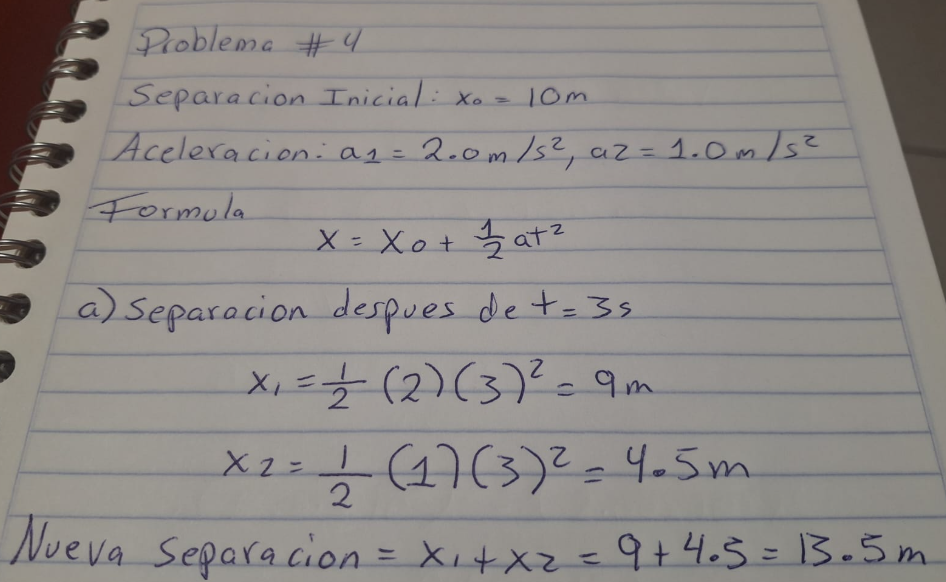 Problema #4
Separacion Inicial: x₀ = 10m
Aceleracion: a1 = 2.0m/s², a2 = 1.0m/s²
Formula
x = x₀ + 1/2 at²
a) Separacion despues de t = 3s
x₁ = 1/2 (2)(3)² = 9m
x2 = 1/2 (1)(3)² = 4.5m
Nueva Separacion = x₁ + x2 = 9 + 4.5 = 13.5m